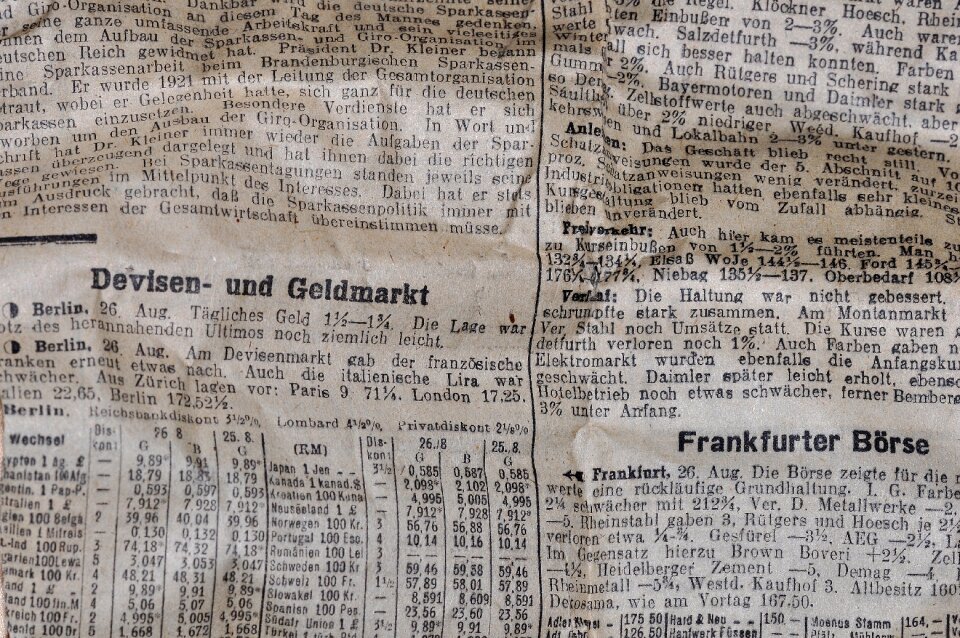 Giro-Organisation. Dankbar wird die deutsche Sparkassen-
Giro-Organisation an diesem Tag des Mannes gedenken
seine ganze umfassende Arbeitskraft und sein vielseitiges
nnen dem Aufbau der Sparkassen- und Giro-Organisation im
eutschen Reich gewidmet hat. Präsident Dr. Kleiner begann
ine Sparkassenarbeit beim Brandenburgischen Sparkassen-
rband. Er wurde 1921 mit der Leitung der Gesamtorganisation
traut, wobei er Gelegenheit hatte, sich ganz für die deutschen
parkassen einzusetzen. Besondere Verdienste hat er sich
worben um den Ausbau der Giro-Organisation. In Wort und
chrift hat Dr. Kleiner immer wieder die Aufgaben der Spar-
assen überzeugend dargelegt und hat ihnen dabei die richtigen
ege gewiesen. Bei Sparkassentagungen standen jeweils seine
usführungen im Mittelpunkt des Interesses. Dabei hat er stets
um Ausdruck gebracht, daß die Sparkassenpolitik immer mit
en Interessen der Gesamtwirtschaft übereinstimmen müsse.
Devisen- und Geldmarkt
Berlin, 26. Aug. Tägliches Geld 1½—1¾. Die Lage war
otz des herannahenden Ultimos noch ziemlich leicht.
Berlin, 26. Aug. Am Devisenmarkt gab der französische
ranken erneut etwas nach. Auch die italienische Lira war
chwächer. Aus Zürich lagen vor: Paris 9 71¼. London 17.25.
alien 22,65, Berlin 172,52½.
Berlin. Reichsbankdiskont 3½%, Lombard 4½%, Privatdiskont 2⅛%
Wechsel Dis-kont 26 8 G B 25. 8. G
gypten 1 äg. £ — 9,89* 9,91 9,89*
hanistan 100 Afg — 18,79 18,83 18,79
gentin. 1 Pap-P. — 0,593 0,597 0,593
stralien 1 £ — 7,912* 7,928 7,912*
lgien 100 Belga 2 39,96 40,04 39,96
silien 1 Milreis — 0,130 0,132 0,130
t.-Ind 100 Rup. 3 74,18* 74,32 74,18
garien 100 Lewa 5 3,047 3,053 3,047
emark 100 Kr. 4 48,21 48,31 48,21
and 1 £ 2 9,89* 9,91 9,89*
land 100 fin. M 4 5,06 5,07 5,06
kreich 100 Fr. 2 4,995* 5,005 4,995*
enld 100 Dr 5 1,668 1,672 1,668
(RM) Dis-kont 26./8 G B 25. 8. G
Japan 1 Jen 3½ 0,585 0,587 0,585
Kanada 1 kanad. $ — 2,098* 2,102 2,098*
Kroatien 100 Kuna 4,995 5,005 4,995
Neuseeland 1 £ — 7,912* 7,928 7,912*
Norwegen 100 Kr. 3 56,76 56,88 56,76
Portugal 100 Esc. 4 10,14 10,16 10,14
Rumänien 100 Lei 3
Schweden 100 Kr 3 59,46 59,58 59,46
Schweiz 100 Fr. 1½ 57,89 58,01 57,89
Slowakei 100 Kr 8,591 8,609 8,591
Spanien 100 Pes. 23,56 23,60 23,56
Südafr Union 1 £ 9,89 9,91 9,89
Stahl
ten Einbußen von 2—3%. Auch waren
Winter wach. Salzdetfurth —3%, während Ka
mals all sich besser halten konnten. Farben
Gumm r 2%. Auch Rütgers und Schering stark
so De —2%. Bayermotoren und Daimler stark
Zellstoffwerte auch abgeschwächt, aber
kehrsw über 2% niedriger Wesd. Kaufhof —2
en und Lokalbahn 2—3% unter gestern.
Anlei Das Geschäft blieb recht still. Vo
Schatz weisungen wurde der 5. Abschnitt auf 10
proz. Schatzanweisungen wenig verändert, zu
Industrieobligationen hatten ebenfalls sehr kleines
Kursgestaltung blieb vom Zufall abhängig. St
blieben unverändert.
Freiverkehr: Auch hier kam es meistenteils zu
zu Kurseinbußen von 1½—2% führten. Man h
132¾—134¼, Elsaß WoJe 144½—146. Ford 145¾
176¼ 177¼. Niebag 135½—137. Oberbedarf 108½
Verlauf: Die Haltung war nicht gebessert.
schrumpfte stark zusammen. Am Montanmarkt
Ver. Stahl noch Umsätze statt. Die Kurse waren
detfurth verloren noch 1%. Auch Farben gaben n
Elektromarkt wurden ebenfalls die Anfangsku
geschwächt. Daimler später leicht erholt, ebenso
Hotelbetrieb noch etwas schwächer, ferner Bemberg
3% unter Anfang.
Frankfurter Börse
Frankfurt, 26. Aug. Die Börse zeigte für die
werte eine rückläufige Grundhaltung. I. G. Farbe
2¼ schwächer mit 212¾, Ver. D. Metallwerke —2
—5, Rheinstahl gaben 3, Rütgers und Hoesch je 2½
verloren etwa ¼—¾. Gesfürel —3½, AEG —2½, L
Im Gegensatz hierzu Brown Boveri +2½. Zell
—4½, Heidelberger Zement —5, Demag —4
Rheinmetall —5¾, Westd. Kaufhof 3. Altbesitz 160
Derosama, wie am Vortag 167.50.
Adler Kleyer 175 50 Hard & Neu 150.— Moenus Stamm 164,—
126,50 Hanfwerk Füssen